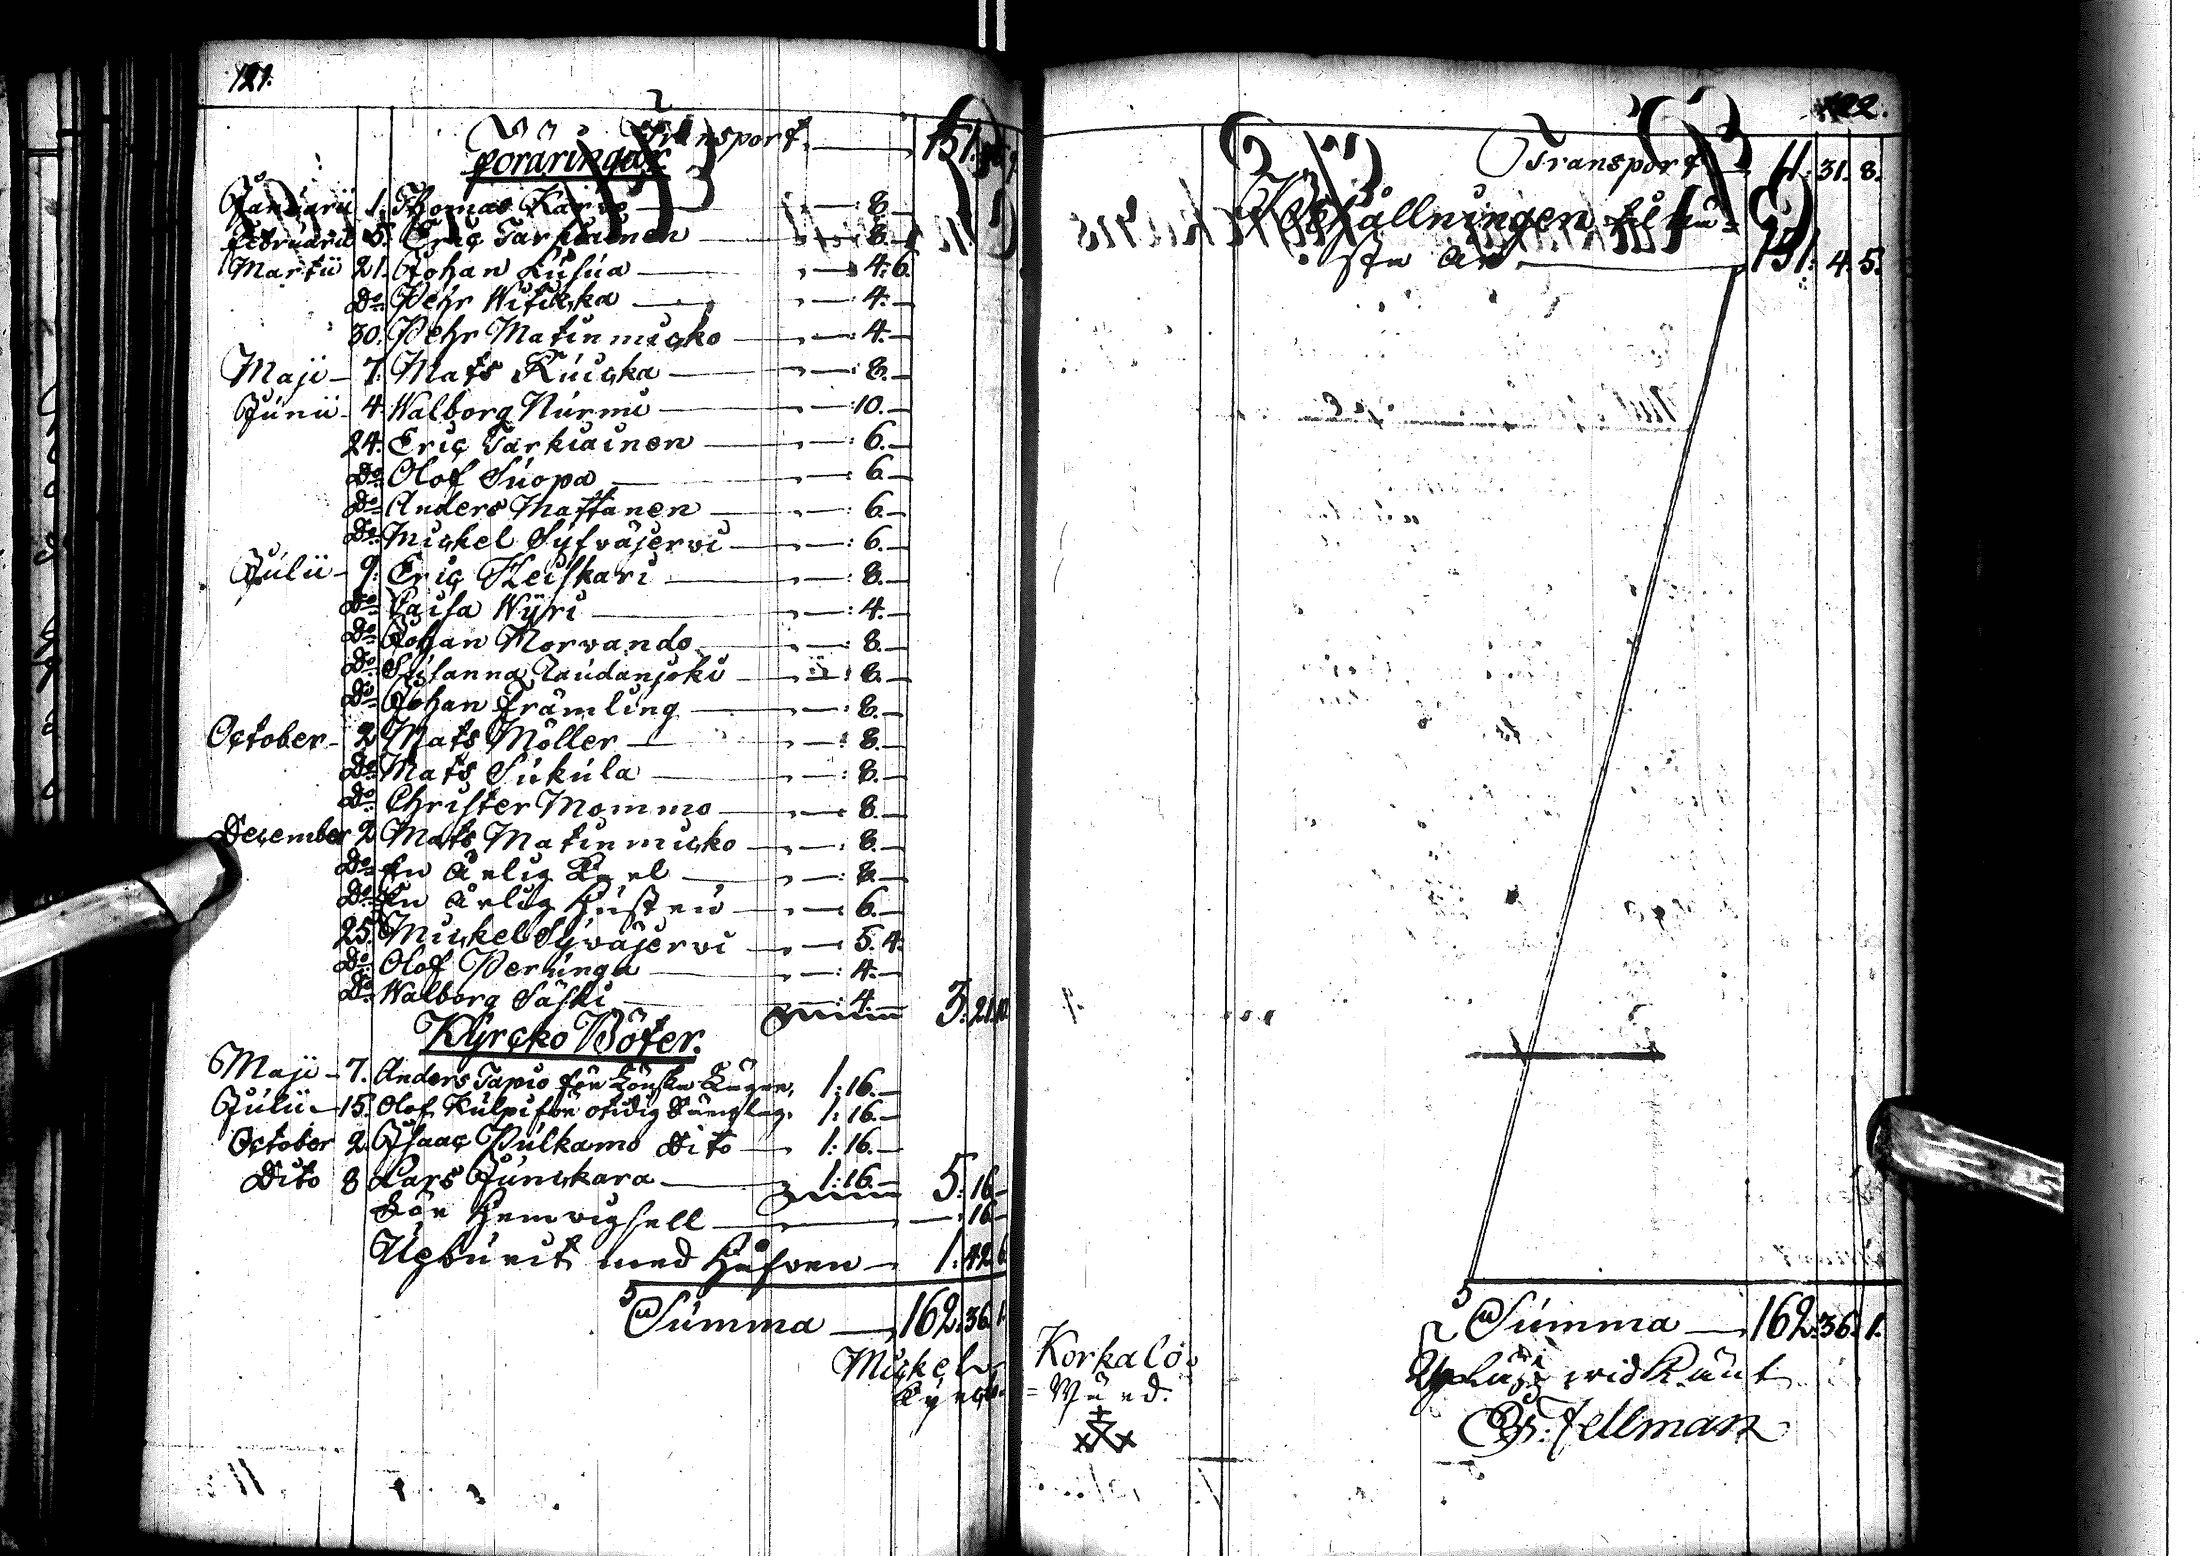 121.
Transport. 151.
Föräringar
Januarii 1. Thomas Karvo — 8.
Februarii 5. Eric Tarkiainen — 8.
Martii 21. Johan Kusua — 4:6.
Do Pehr Witicka — 4.
30. Pehr Matinmicko — 4.
Maji 7. Mats Kuicka — 8.
Junii 4. Walborg Nurmi — 10.
24. Eric Tarkiainen — 6.
Do Olof Suopa — 6.
Do Anders Mattanen — 6.
Do Mickel Syfväjervi — 6.
Julii 9. Eric Heiskari — 8.
Do Caisa Wyri — 4.
Do Johan Morvando — 8.
Do Susanna Raudanjoki — 8.
Do Johan Främling — 8.
October 2 Mats Möller — 8.
Do Mats Sukula — 8.
Do Christer Mommo — 8.
December 2 Mats Matinmicko — 8.
Do En ärlig Karl — 8.
Do En ärlig Hustru — 6.
25. Mickel Syväjervi — 5.4.
Do Olof Perunga — 4.
Do Walborg Säski — 4. 3:21.10
Kyrcko Böter.
Maji 7. Anders Tapio för 1:16.
Julii 15. Olof Kulpi för otidig Sänglag. 1:16.
October 2 Isaac Pulkamo Dito — 1:16.
Dito 8 Lars Junckara — 1:16. 5:16.
För Hemvigsell — 16
Upburit med Håfven — 1:42.6
Summa — 162:36.1.
Mickel
Kyrck
122.
Transport 11:31.8.
Behållningen til nä=
sta År — 151:4.5.
Summa — 162:36.1.
Korkalo
=Wärd.
Uplüst widkänt
Es. Fellman